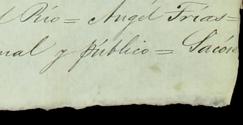 l Río = Angel Frías =
nal y público = Sacóse